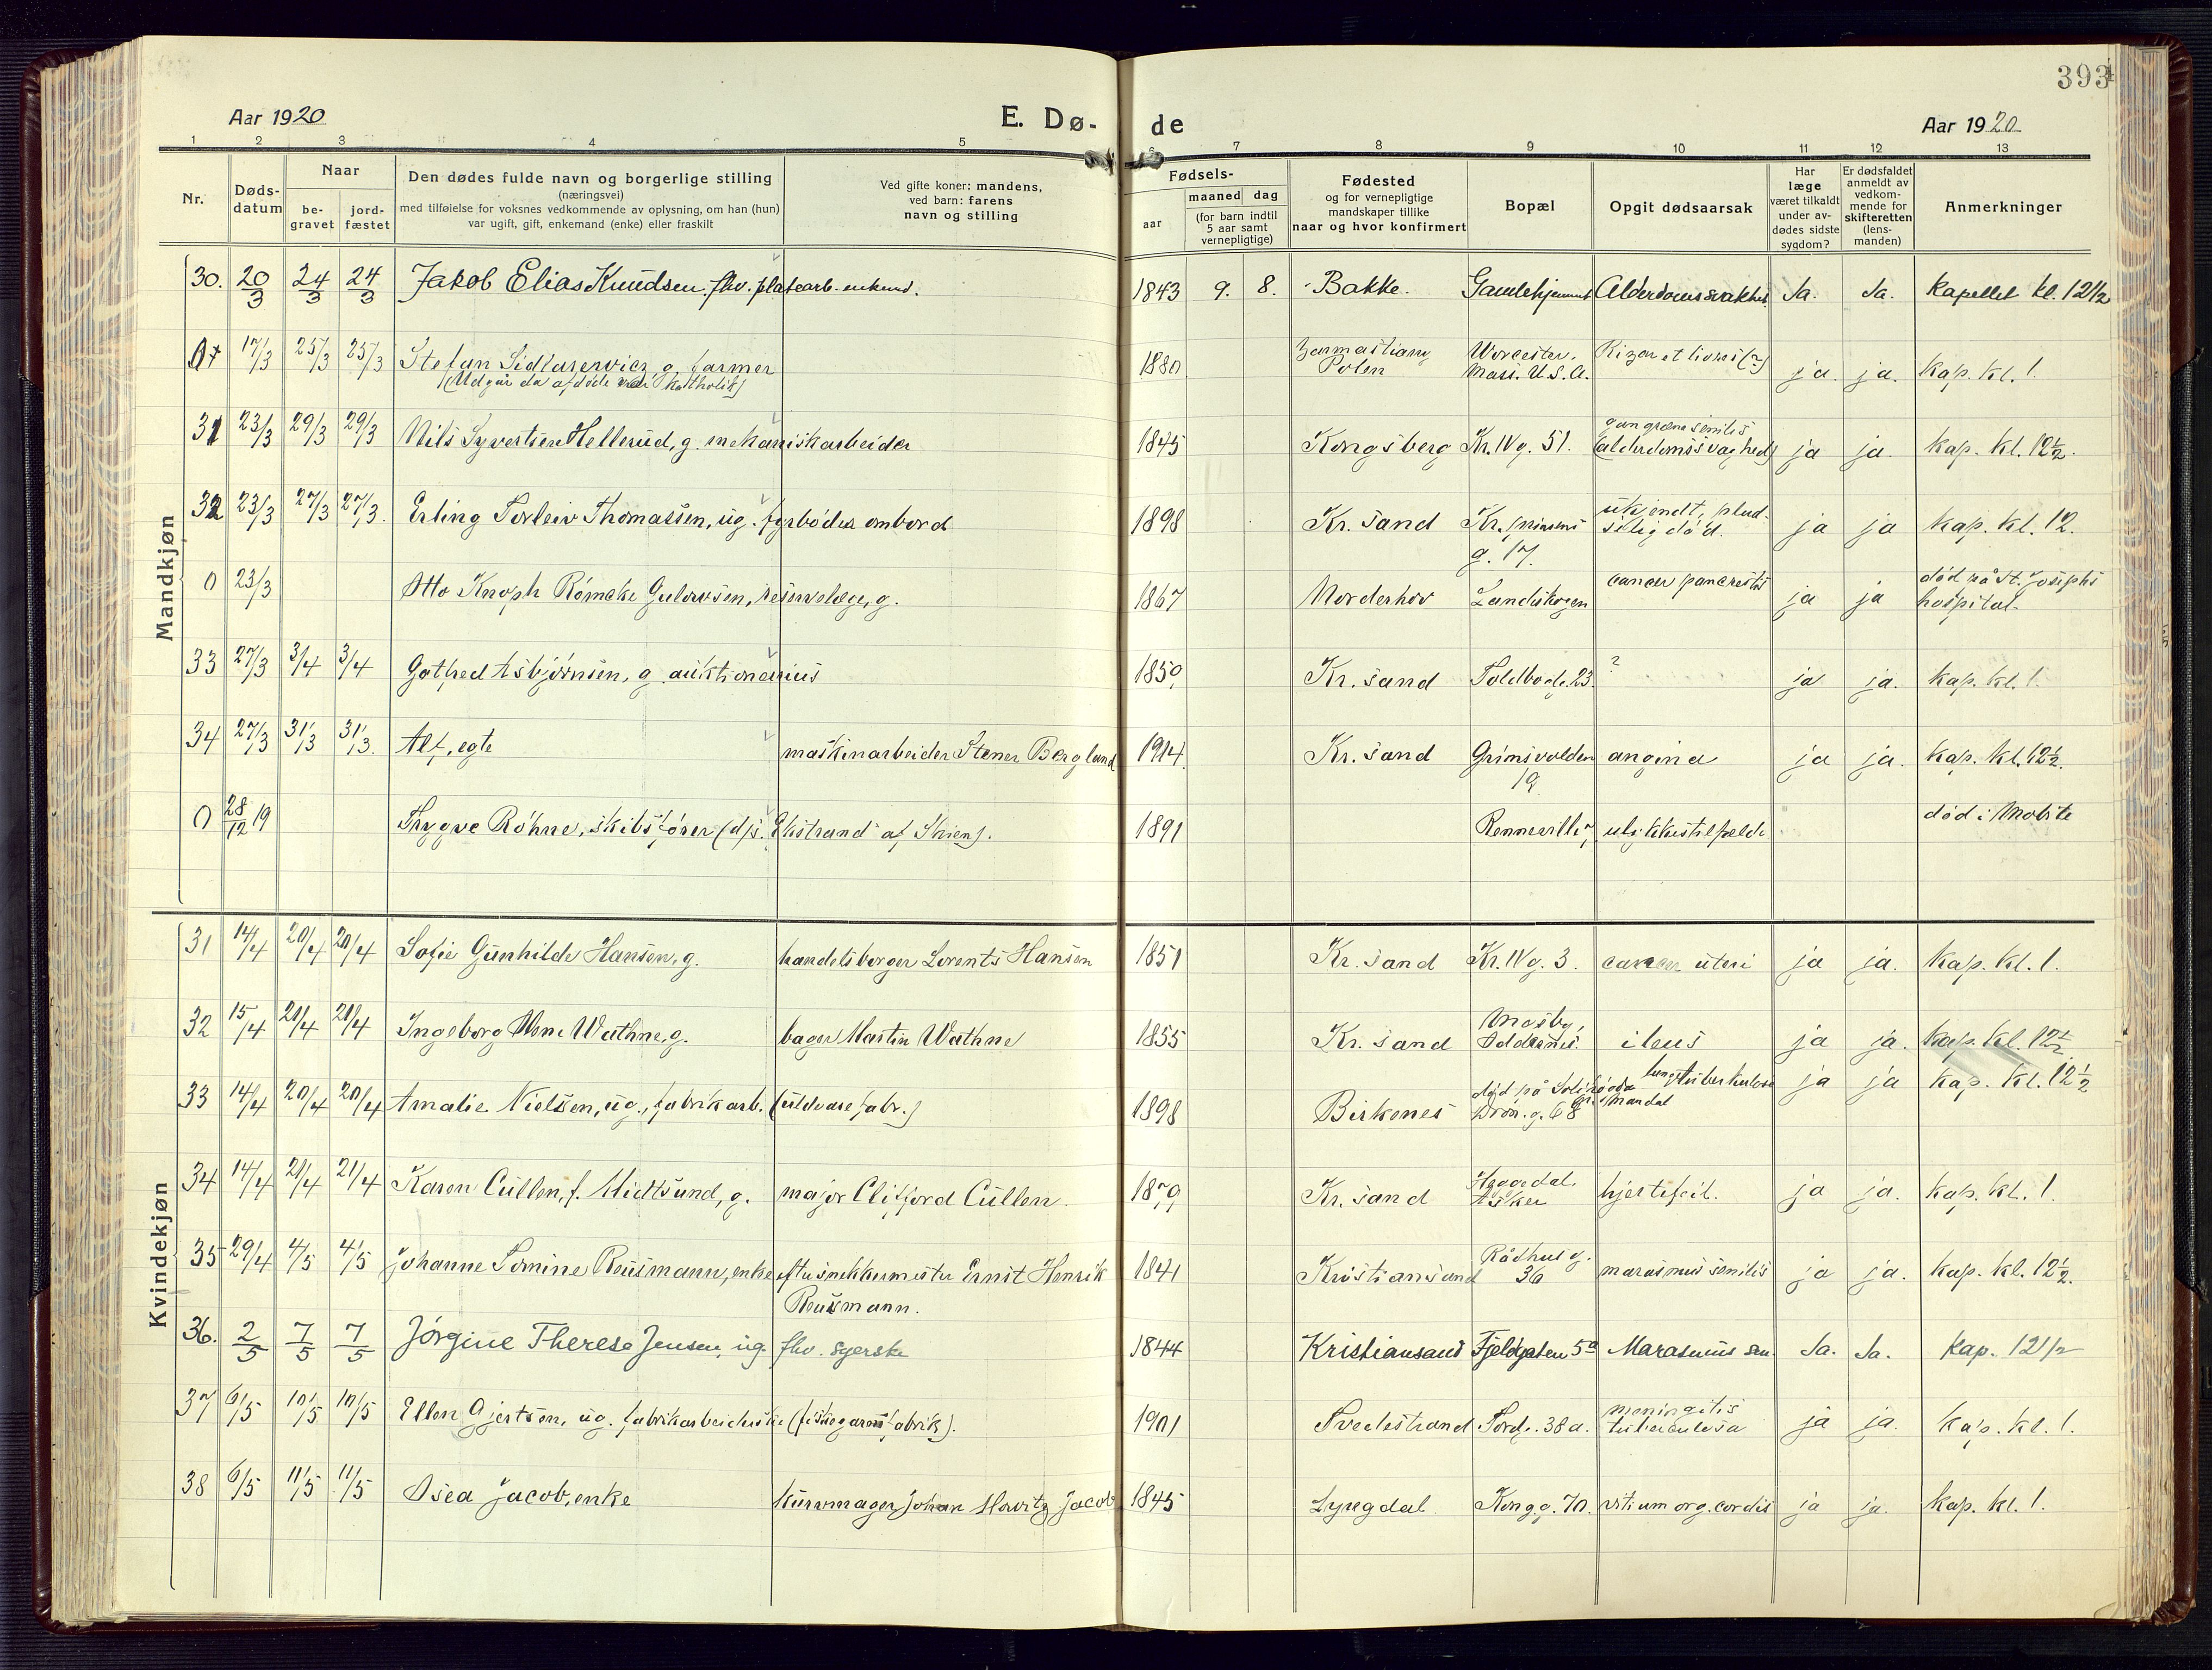 393
Aar 1920 E. Dø- de Aar 1920
1 2 3 4 5 6 7 8 9 10 11 12 13
Nr.
Døds-
datum
Naar
be-
gravet
jord-
fæstet
Den dødes fulde navn og borgerlige stilling
(næringsvei)
med tilføielse for voksnes vedkommende av oplysning, om han (hun)
var ugift, gift, enkemand (enke) eller fraskilt
Ved gifte koner: mandens,
ved barn: farens
navn og stilling
Fødsels-
aar
maaned dag
(for barn indtil
5 aar samt
vernepligtige)
Fødested
og for vernepligtige
mandskaper tillike
naar og hvor konfirmert
Bopæl
Opgit dødsaarsak
Har
læge
været tilkaldt
under av-
dødes sidste
sygdom?
Er dødsfaldet
anmeldt av
vedkom-
mende for
skifteretten
(lens-
manden)
Anmerkninger
Mandkjøn
30. 20/3 24/3 24/3 Jakob Elias Knudsen. fhv. platearb. enkemd. 1843 9. 8. Bakke. Gamlehjemmet Alderdomssvakhet Ja. Ja. Kapellet kl. 12 1/2
17/3 25/3 25/3 Stefan g. farmer 1880 Polen Worcester. Mass. U.S.A. (?) ja. ja. Kap. kl. 1.
(Katholik)
31 23/3 29/3 29/3 Nils Syvertsen Hellerud, g. mekaniskarbeider 1845 Kongsberg Kr. IV g. 51. gangræna senilis (alderdomssvaghed) ja ja Kap. kl. 12 1/2.
32 23/3 27/3 27/3. Erling Torleiv Thomassen, ug. fyrbøder ombord 1898 Kr.sand Kr. prinsens g. 17. ukjendt, plud- selig død. ja ja Kap. kl. 12.
0 23/3 Otto Knoph Rømcke Gulowsen, reservelæge, g. 1867 Norderhov cancer pancreatis ja ja død på St. Josephs hospital.
33 27/3 3/4 3/4 Gotfred Asbjørnsen, g. auktionarius 1850 Kr.sand Toldbodg. 23. ? ja ja. Kap. kl. 1.
34 27/3 31/3 31/3. Alf, egte maskinarbeider Stener Bergland 1914 Kr.sand Grimsvolden 19 angina ja ja. Kap. kl. 12 1/2.
0 28/12 19 Trygve Röhne, skibsfører (d/s. Ekstrand af Skien). 1891 ulykkestilfælde død i Mobile
Kvindekjøn
31 14/4 20/4 20/4 Sofie Gunhilde Hansen, g. handelsborger Lorents Hansen 1851 Kr.sand Kr. IV g. 3. cancer uteri ja ja. Kap. kl. 1.
32 15/4 21/4 21/4 Ingeborg Wathne, g. bager Martin Wathne 1855 Kr.sand Mosby, Oddernes. ileus ja ja. Kap. kl. 12 1/2.
33 14/4 20/4 20/4 Amalie Nielsen, ug., fabrikarb. (uldvarefabr.) 1898 Birkenes død på Solhøgda Dron. g. 68 Mandal lungetuberkulose ja ja Kap. kl. 12 1/2
34 14/4 21/4 21/4 Karen Cullen, f. Midtsund, g. major Clifford Cullen. 1879 Kr.sand Heggedal, Asker hjertefeil. ja ja. Kap. kl. 1.
35 29/4 4/5 4/5 Johanne Tomine Reusmann, enke efter snekkermester Ernst Henrik 1841 Kristiansand Rådhusg. 36 marasmus senilis ja ja. Kap. kl. 12 1/2.
Reusmann.
36. 2/5 7/5 7/5 Jørgine Therese Jensen, ug. fhv. syerske 1844 Kristiansand Fjeldgaten 5a Marasmus sen. Ja. Ja. Kap. 12 1/2
37 6/5 10/5 10/5 Ellen Gjertsen, ug. fabrikarbeiderske (fiskegarnsfabrik). 1901 Tvedestrand Tordg. 38 a. meningitis tuberculosa ja ja. Kap. kl. 1.
38 6/5 11/5 11/5 Osea Jacob, enke bundtmager Johan Moritz Jacob 1845 Lyngdal Kong. g. 70. vitium org. cordis ja ja. Kap. kl. 1.